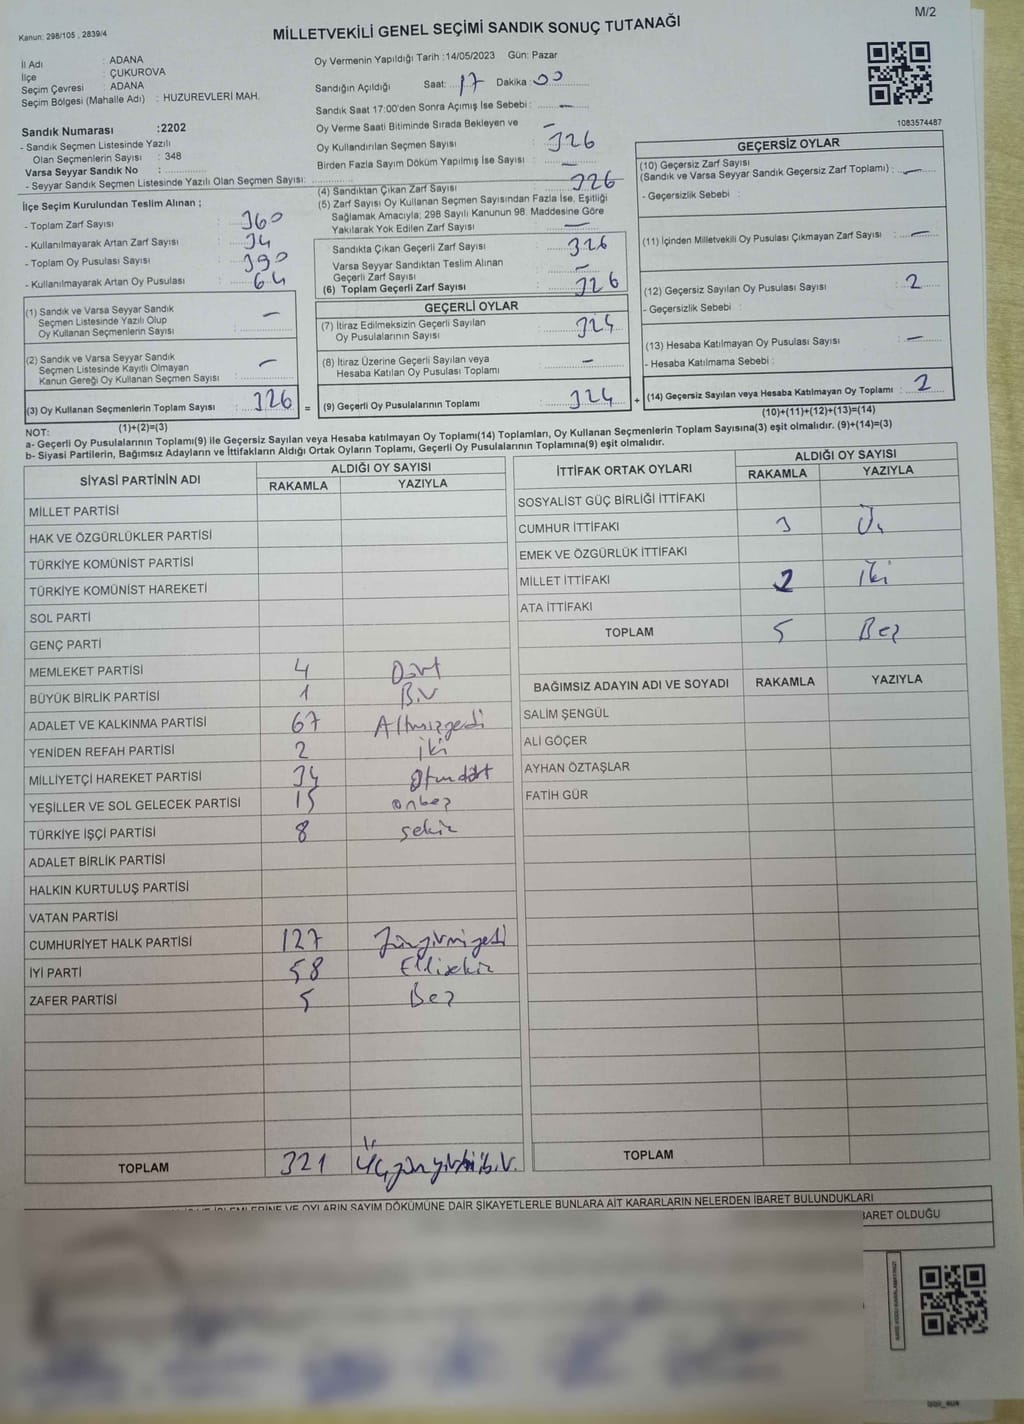 M/2
Kanun: 298/105 , 2839/4
MİLLETVEKİLİ GENEL SEÇİMİ SANDIK SONUÇ TUTANAĞI
İl Adı : ADANA
İlçe : ÇUKUROVA
Seçim Çevresi : ADANA
Seçim Bölgesi (Mahalle Adı) : HUZUREVLERİ MAH.
Sandık Numarası :2202
- Sandık Seçmen Listesinde Yazılı
Olan Seçmenlerin Sayısı : 348
Varsa Seyyar Sandık No :
- Seyyar Sandık Seçmen Listesinde Yazılı Olan Seçmen Sayısı:
İlçe Seçim Kurulundan Teslim Alınan ;
- Toplam Zarf Sayısı : 360
- Kullanılmayarak Artan Zarf Sayısı : 34
- Toplam Oy Pusulası Sayısı : 390
- Kullanılmayarak Artan Oy Pusulası : 64
(1) Sandık ve Varsa Seyyar Sandık
Seçmen Listesinde Yazılı Olup
Oy Kullanan Seçmenlerin Sayısı : —
(2) Sandık ve Varsa Seyyar Sandık
Seçmen Listesinde Kayıtlı Olmayan
Kanun Gereği Oy Kullanan Seçmen Sayısı : —
(3) Oy Kullanan Seçmenlerin Toplam Sayısı : 326
(1)+(2)=(3)
Oy Vermenin Yapıldığı Tarih :14/05/2023 Gün: Pazar
Sandığın Açıldığı Saat: 17 Dakika : 00
Sandık Saat 17:00'den Sonra Açımış İse Sebebi : —
Oy Verme Saati Bitiminde Sırada Bekleyen ve
Oy Kullandırılan Seçmen Sayısı : — 326
Birden Fazla Sayım Döküm Yapılmış İse Sayısı : —
(4) Sandıktan Çıkan Zarf Sayısı : 326
(5) Zarf Sayısı Oy Kullanan Seçmen Sayısından Fazla İse, Eşitliği
Sağlamak Amacıyla; 298 Sayılı Kanunun 98. Maddesine Göre
Yakılarak Yok Edilen Zarf Sayısı : —
Sandıkta Çıkan Geçerli Zarf Sayısı : 326
Varsa Seyyar Sandıktan Teslim Alınan
Geçerli Zarf Sayısı : —
(6) Toplam Geçerli Zarf Sayısı : 326
GEÇERLİ OYLAR
(7) İtiraz Edilmeksizin Geçerli Sayılan
Oy Pusulalarının Sayısı : 324
(8) İtiraz Üzerine Geçerli Sayılan veya
Hesaba Katılan Oy Pusulası Toplamı : —
= (9) Geçerli Oy Pusulalarının Toplamı : 324 +
1083574487
GEÇERSİZ OYLAR
(10) Geçersiz Zarf Sayısı
(Sandık ve Varsa Seyyar Sandık Geçersiz Zarf Toplamı) : —
- Geçersizlik Sebebi :
(11) İçinden Milletvekili Oy Pusulası Çıkmayan Zarf Sayısı : —
(12) Geçersiz Sayılan Oy Pusulası Sayısı : 2
- Geçersizlik Sebebi :
(13) Hesaba Katılmayan Oy Pusulası Sayısı : —
- Hesaba Katılmama Sebebi :
(14) Geçersiz Sayılan veya Hesaba Katılmayan Oy Toplamı : 2
(10)+(11)+(12)+(13)=(14)
NOT:
a- Geçerli Oy Pusulalarının Toplamı(9) ile Geçersiz Sayılan veya Hesaba katılmayan Oy Toplamı(14) Toplamları, Oy Kullanan Seçmenlerin Toplam Sayısına(3) eşit olmalıdır. (9)+(14)=(3)
b- Siyasi Partilerin, Bağımsız Adayların ve İttifakların Aldığı Ortak Oyların Toplamı, Geçerli Oy Pusulalarının Toplamına(9) eşit olmalıdır.
SİYASİ PARTİNİN ADI ALDIĞI OY SAYISI
RAKAMLA YAZIYLA
MİLLET PARTİSİ
HAK VE ÖZGÜRLÜKLER PARTİSİ
TÜRKİYE KOMÜNİST PARTİSİ
TÜRKİYE KOMÜNİST HAREKETİ
SOL PARTİ
GENÇ PARTİ
MEMLEKET PARTİSİ 4 Dört
BÜYÜK BİRLİK PARTİSİ 1 Bir
ADALET VE KALKINMA PARTİSİ 67 Altmışyedi
YENİDEN REFAH PARTİSİ 2 iki
MİLLİYETÇİ HAREKET PARTİSİ 34 Otuzdört
YEŞİLLER VE SOL GELECEK PARTİSİ 15 onbeş
TÜRKİYE İŞÇİ PARTİSİ 8 sekiz
ADALET BİRLİK PARTİSİ
HALKIN KURTULUŞ PARTİSİ
VATAN PARTİSİ
CUMHURİYET HALK PARTİSİ 127 Yüzyirmiyedi
İYİ PARTİ 58 Ellisekiz
ZAFER PARTİSİ 5 Beş
TOPLAM 321 Üçyüzyirmibir
İTTİFAK ORTAK OYLARI ALDIĞI OY SAYISI
RAKAMLA YAZIYLA
SOSYALİST GÜÇ BİRLİĞİ İTTİFAKI
CUMHUR İTTİFAKI 3 Üç
EMEK VE ÖZGÜRLÜK İTTİFAKI
MİLLET İTTİFAKI 2 iki
ATA İTTİFAKI
TOPLAM 5 Beş
BAĞIMSIZ ADAYIN ADI VE SOYADI RAKAMLA YAZIYLA
SALİM ŞENGÜL
ALİ GÖÇER
AYHAN ÖZTAŞLAR
FATİH GÜR
TOPLAM
VE OYLARIN SAYIM DÖKÜMÜNE DAİR ŞİKAYETLERLE BUNLARA AİT KARARLARIN NELERDEN İBARET BULUNDUKLARI
BARET OLDUĞU